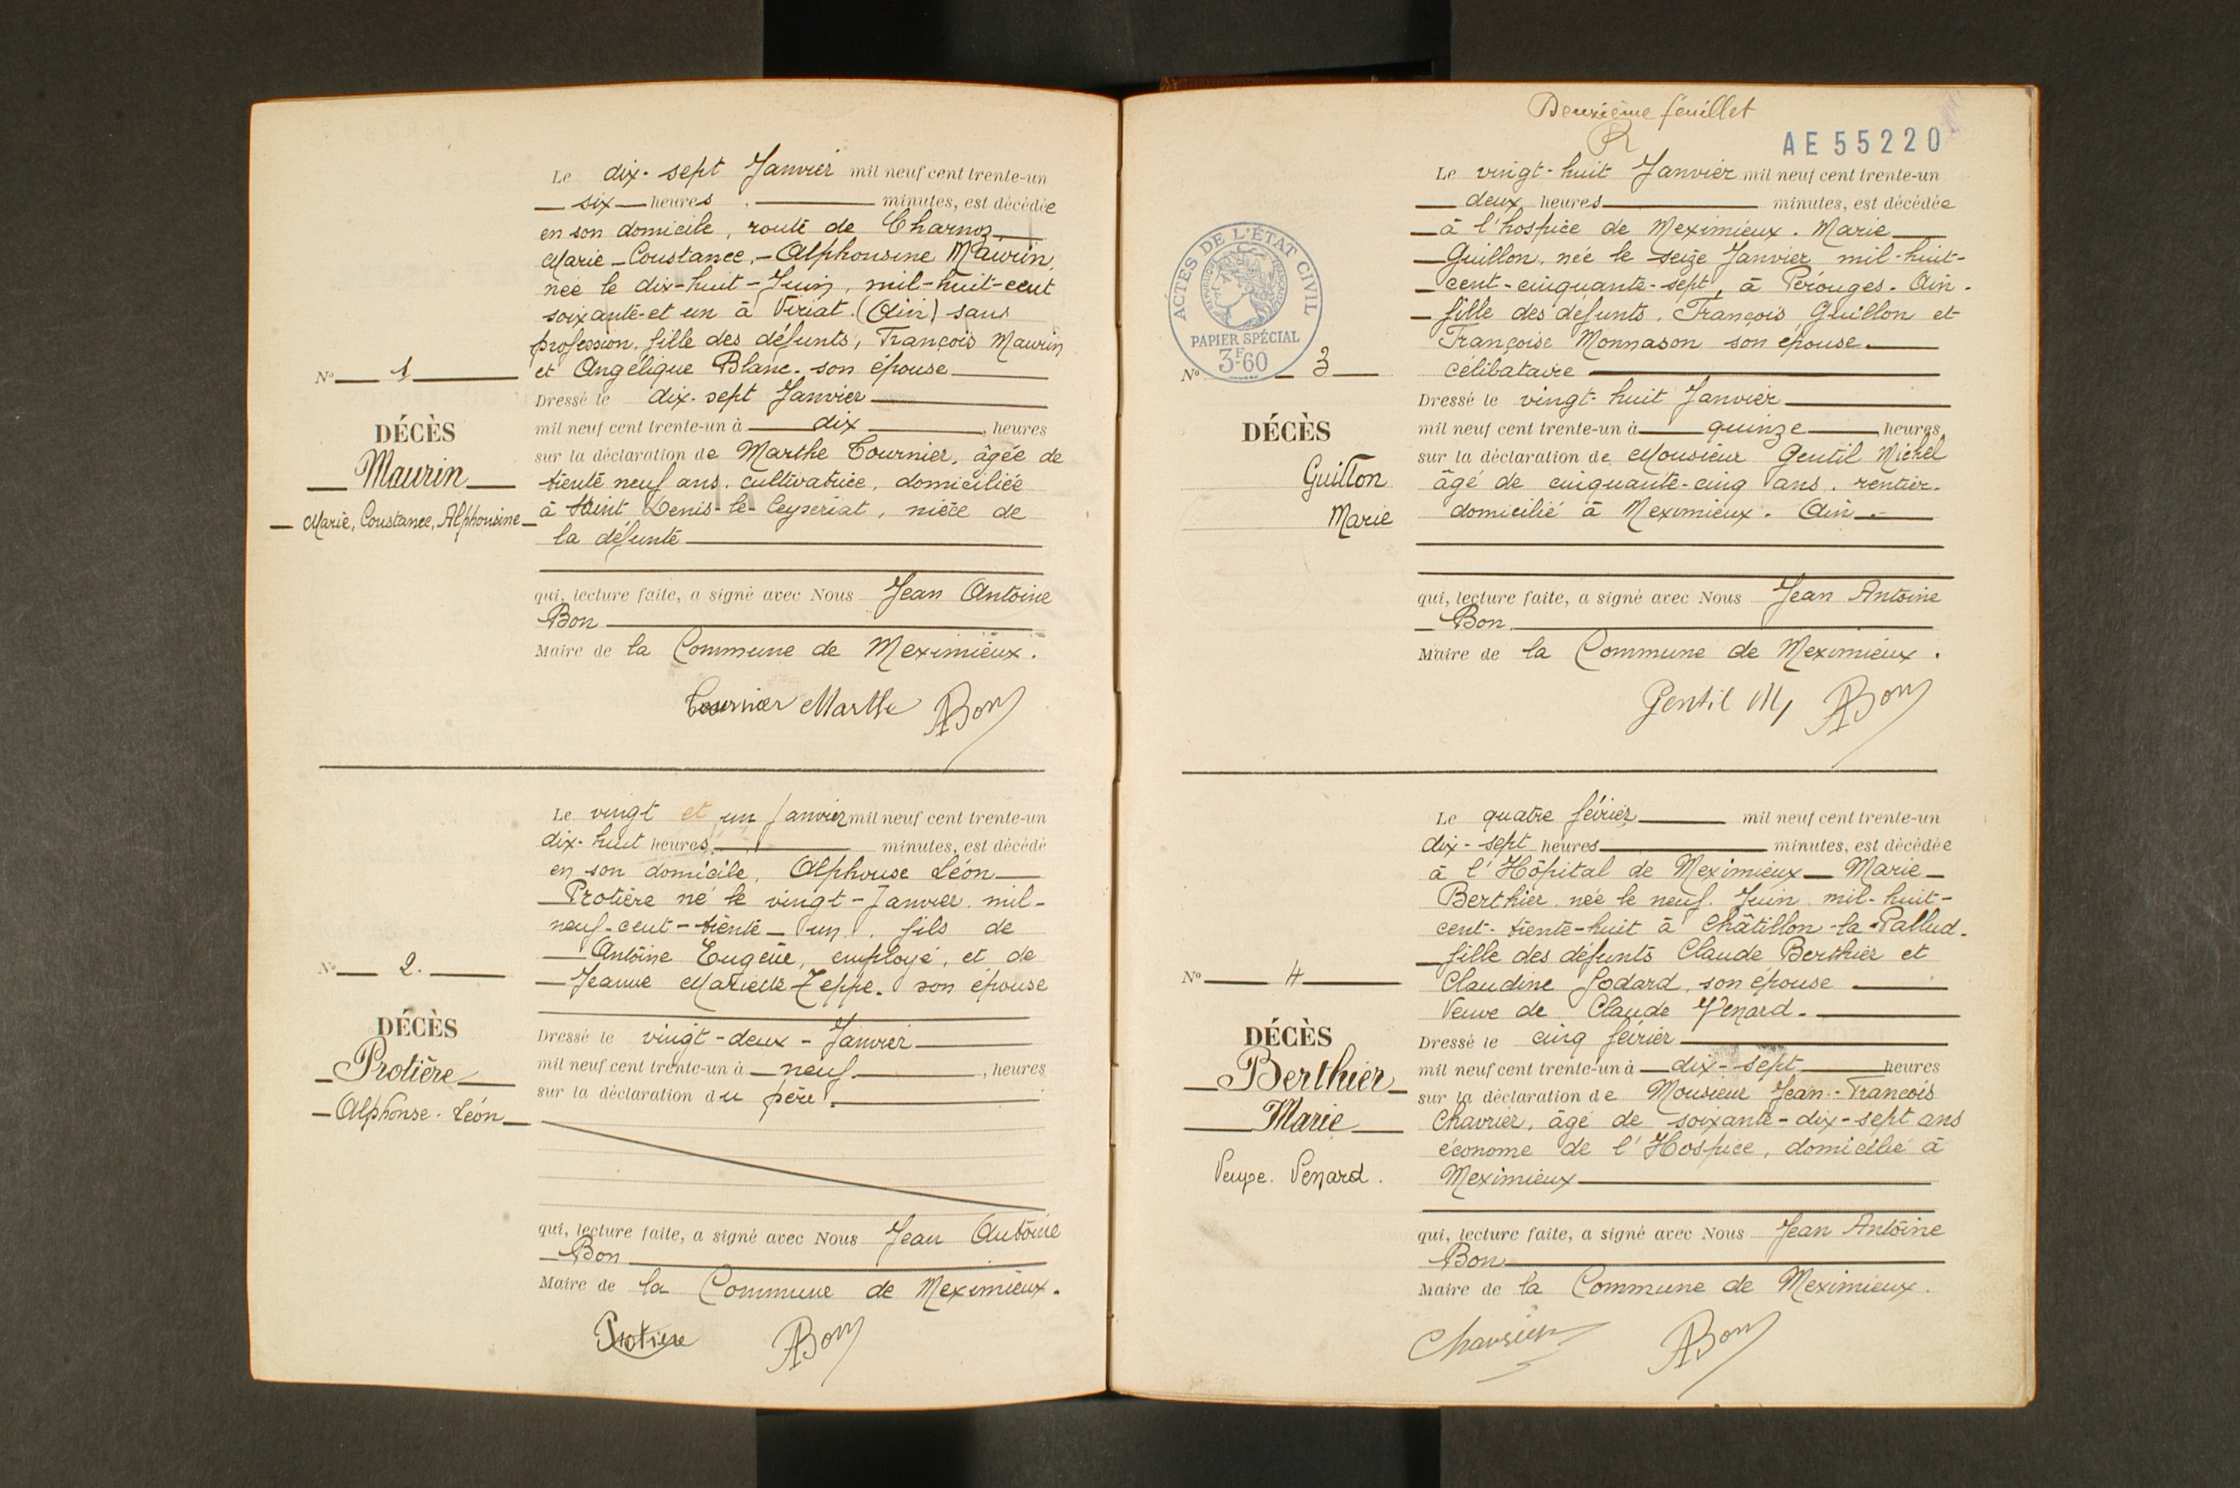 Le dix-sept Janvier mil neuf cent trente-un
six heures minutes, est décédée
en son domicile, route de Charnoz
Marie-Constance,-Alphonsine Maurin,
née le dix-huit-Juin, mil-huit-cent
soixante-et un à Viriat.(Ain) sans
profession, fille des défunts, François Maurin
et Angélique Blanc. son épouse
Nº 1
Dressé le dix-sept Janvier
mil neuf cent trente-un à dix, heures
DÉCÈS
Maurin
Marie, Constance, Alphonsine
sur la déclaration de Marthe Tournier, âgée de
trente neuf ans, cultivatrice, domiciliée
à Saint Denis-le-Ceyzériat, nièce de
la défunte
qui, lecture faite, a signé avec Nous Jean Antoine
Bon
Maire de la Commune de Meximieux.
Tournier Marthe ABon
Le vingt et un Janvier mil neuf cent trente-un
dix-huit heures minutes, est décédé
en son domicile, Alphonse Léon
Protière né le vingt-Janvier mil-
neuf-cent-trente-un. fils de
Antoine Eugène, employé, et de
Jeanne Marielle Zeppe. son épouse
Nº 2.
DÉCÈS
Protière
Alphonse-Léon
Dressé le vingt-deux-Janvier
mil neuf cent trente-un à neuf, heures
sur la déclaration du père.
qui, lecture faite, a signé avec Nous Jean Antoine
Bon
Maire de la Commune de Meximieux.
Protiere ABon
Deuxième feuillet
R
AE 55220
ACTES DE L'ÉTAT CIVIL
PAPIER SPÉCIAL
3F60
Le vingt-huit Janvier mil neuf cent trente-un
deux heures minutes, est décédée
à l'hospice de Meximieux. Marie
Guillon. née le seize Janvier mil-huit-
cent-cinquante-sept, à Pérouges. Ain.
fille des défunts. François Guillon et
Françoise Monnason son épouse.
célibataire
Nº 3
DÉCÈS
Guillon
Marie
Dressé le vingt-huit Janvier
mil neuf cent trente-un à quinze, heures
sur la déclaration de Monsieur Gentil Michel
âgé de cinquante-cinq ans. rentier.
domicilié à Meximieux. Ain.
qui, lecture faite, a signé avec Nous Jean Antoine
Bon
Maire de la Commune de Meximieux.
Gentil M, ABon
Le quatre février mil neuf cent trente-un
dix-sept heures minutes, est décédée
à l'Hôpital de Meximieux Marie
Berthier née le neuf Juin mil-huit-
cent-trente-huit à Châtillon-la-Pallud.
fille des défunts Claude Berthier et
Claudine Godard, son épouse
Veuve de Claude Venard.
Nº 4
DÉCÈS
Berthier
Marie
Veuve. Venard.
Dressé le cinq février
mil neuf cent trente-un à dix-sept heures
sur la déclaration de Monsieur Jean-François
Chavrier, âgé de soixante-dix-sept ans
économe de l'Hospice, domicilié à
Meximieux
qui, lecture faite, a signé avec Nous Jean Antoine
Bon
Maire de la Commune de Meximieux.
Chavrier ABon